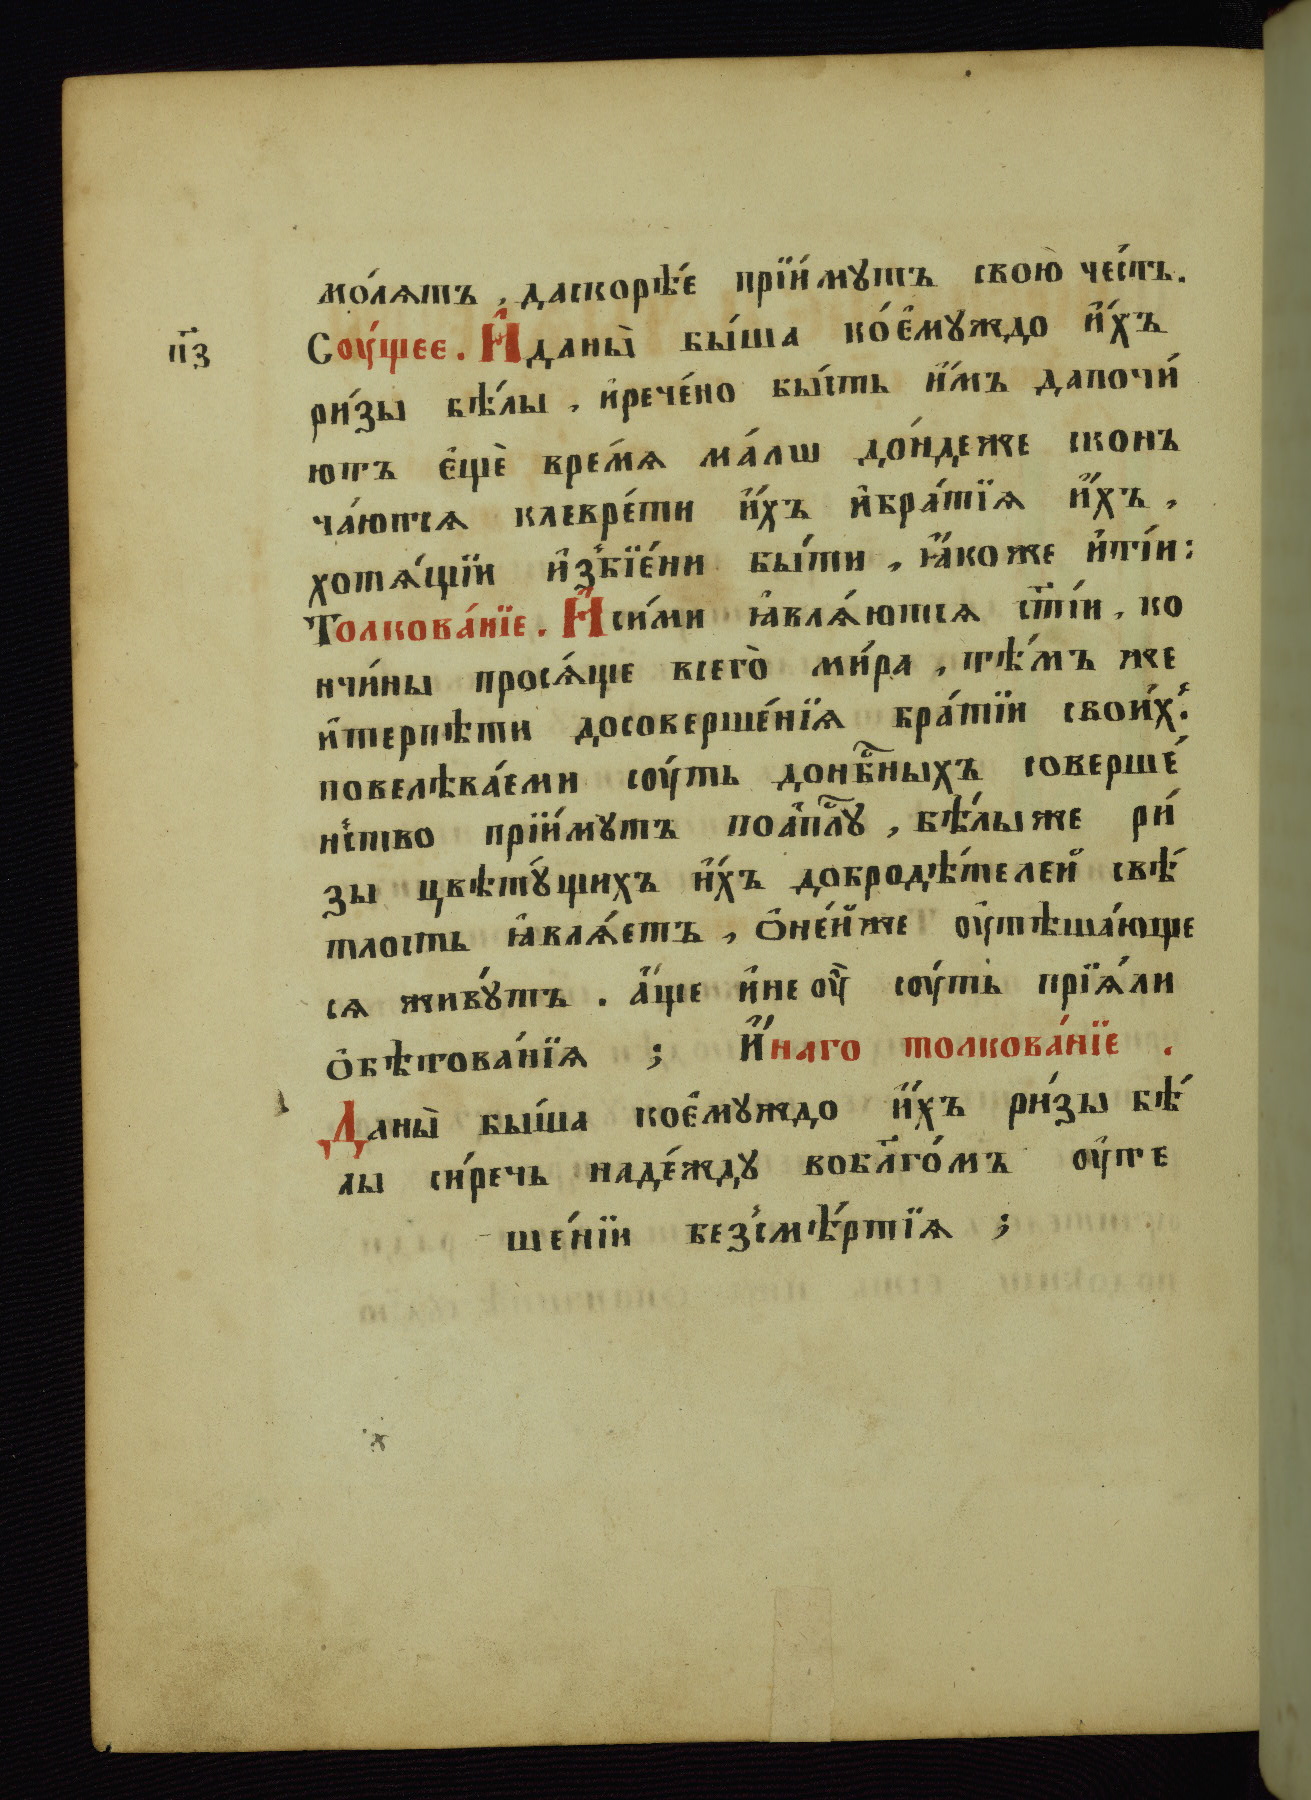 мо́лѧтъ, даскорѣ́е прїи́мутъ свою̀ че́сть.
п҃з
Соу́щее. И҆даны̀ бы́ша ко́е҆муждо и҆́хъ
ри́зы бѣ́лы, и҆рече́но бы́сть и҆́мъ дапочи́
ютъ е҆щѐ вре́мѧ ма́лѡ до́ндеже сконъ
ча́ютсѧ клевре́ти и҆́хъ и҆бра́тїѧ и҆́хъ,
хотѧ́щїи и҆з̾бїе́ни бы́ти, ꙗ҆́коже и҆ті́и:
Толкова́нїе. И҆си́ми ꙗ҆влѧ́ютсѧ ст҃і́и, ко
нчи́ны просѧ́ще всего̀ ми́ра, тѣ́мъ же
и҆терпѣти досоверше́нїѧ бра́тїи свои́х̾.
повелѣва́еми соу́ть донб҃ⷭ҇ныхъ соверше́
н̾ство прїи́мутъ поа҆пⷭ҇лу, бѣ́лыже ри́
зы цвѣту́щихъ и҆́хъ добродѣ́телей свѣ́
тлость ꙗ҆влѧ́етъ, ѻ҆не́йже оу҆тѣша́юще
сѧ живу́тъ. а҆́ще и҆не оу҆̀ соу́ть прїѧ́ли
ѻ҆бѣтова́нїѧ ; И҆́наго толкова́нїе.
Даны̀ бы́ша кое҆муждо и҆́хъ ри́зы бѣ́
лы си́речь наде́жду вобл҃го́мъ оу҆те
ше́нїи без̾смѣ́ртїѧ ;